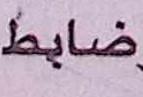 ضابط